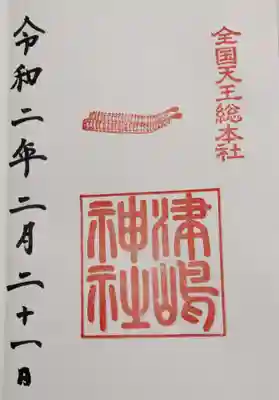 全国天王総本社
津嶋神社
令和二年二月二十一日